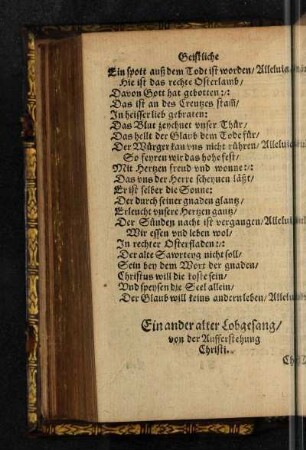 Geistliche
Ein spott auß dem Todt ist worden/ Alleluia
Hie ist das rechte Osterlamb/
Davon Gott hat gebotten:/:
Das ist an des Creutzes stam̃/
In heisser lieb gebraten:
Das Blut zeychnet vnser Thür/
Das helt der Glaub dem Tode für/
Der Würger kan vns nicht rühren/ Alleluia
So feyren wir das hohe fest/
Mit Hertzen freud vnd wonne:/:
Das vns der Herre scheynen läßt/
Er ist selber die Sonne:
Der durch seiner gnaden glantz/
Erleucht vnsere Hertzen gantz/
Der Sünden nacht ist vergangen/ Alleluia
Wir essen vnd leben wol/
In rechter Osterfladen:/:
Der alte Sawrteyg nicht soll/
Sein bey dem Wort der gnaden/
Christus will die koste sein/
Vnd speysen die Seel allein/
Der Glaub will keins andern leben/ Alleluia
Ein ander alter Lobgesang/
von der Aufferstehung
Christi.